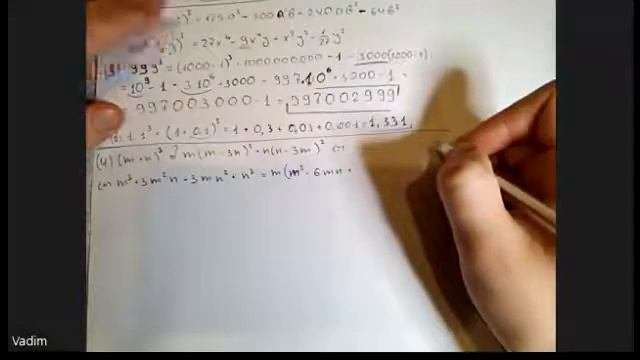 )³ = 125a³ - 300a²b + 240ab² - 64b³
)³ = 27x⁶ - 9x⁴y + x²y² - 1/27y³
999³ = (1000-1)³ = 1000000000 - 1 - 3000(1000-1)
= 10⁹ - 1 - 3·10⁶ + 3000 = 997·10⁶ + 3000 - 1 =
= 997003000 - 1 = 997002999
1,1³ = (1+0,1)³ = 1 + 0,3 + 0,03 + 0,001 = 1,331
(4) (m+n)³ = m(m-3n)² + n(n-3m)² ⇔
⇔ m³ + 3m²n + 3mn² + n³ = m(m² - 6mn +
Vadim